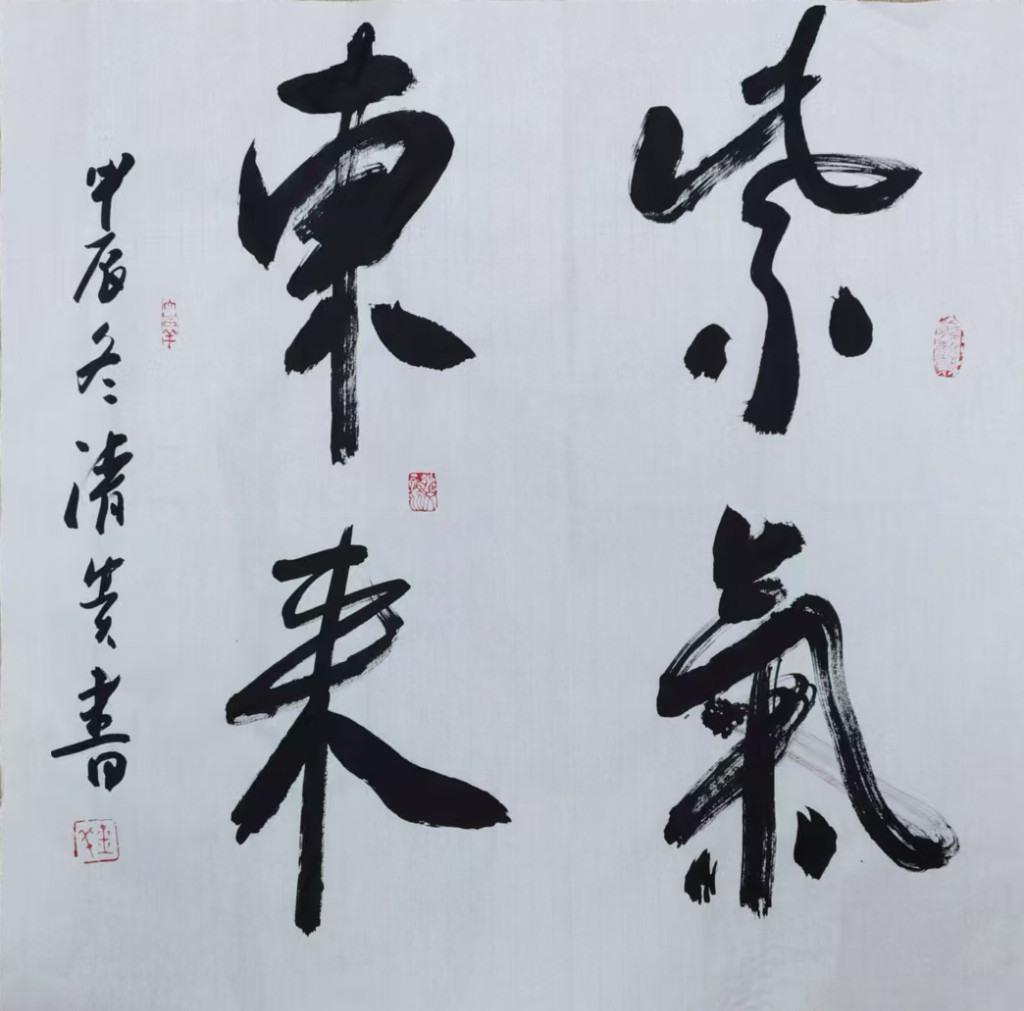 紫氣
東来
甲辰冬清貴書